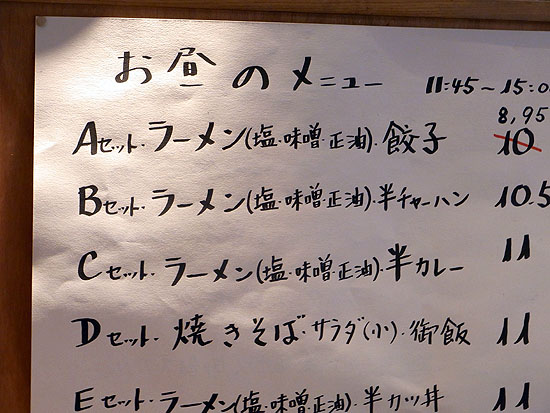 お昼のメニュー 11:45～15:0
8,95
Aセット・ラーメン(塩・味噌・正油)・餃子 10
Bセット・ラーメン(塩・味噌・正油)・半チャーハン 10.5
Cセット・ラーメン(塩・味噌・正油)・半カレー 11
Dセット・焼きそば・サラダ(小)・御飯 11
Eセット・ラーメン(塩・味噌・正油)・半カツ丼 11